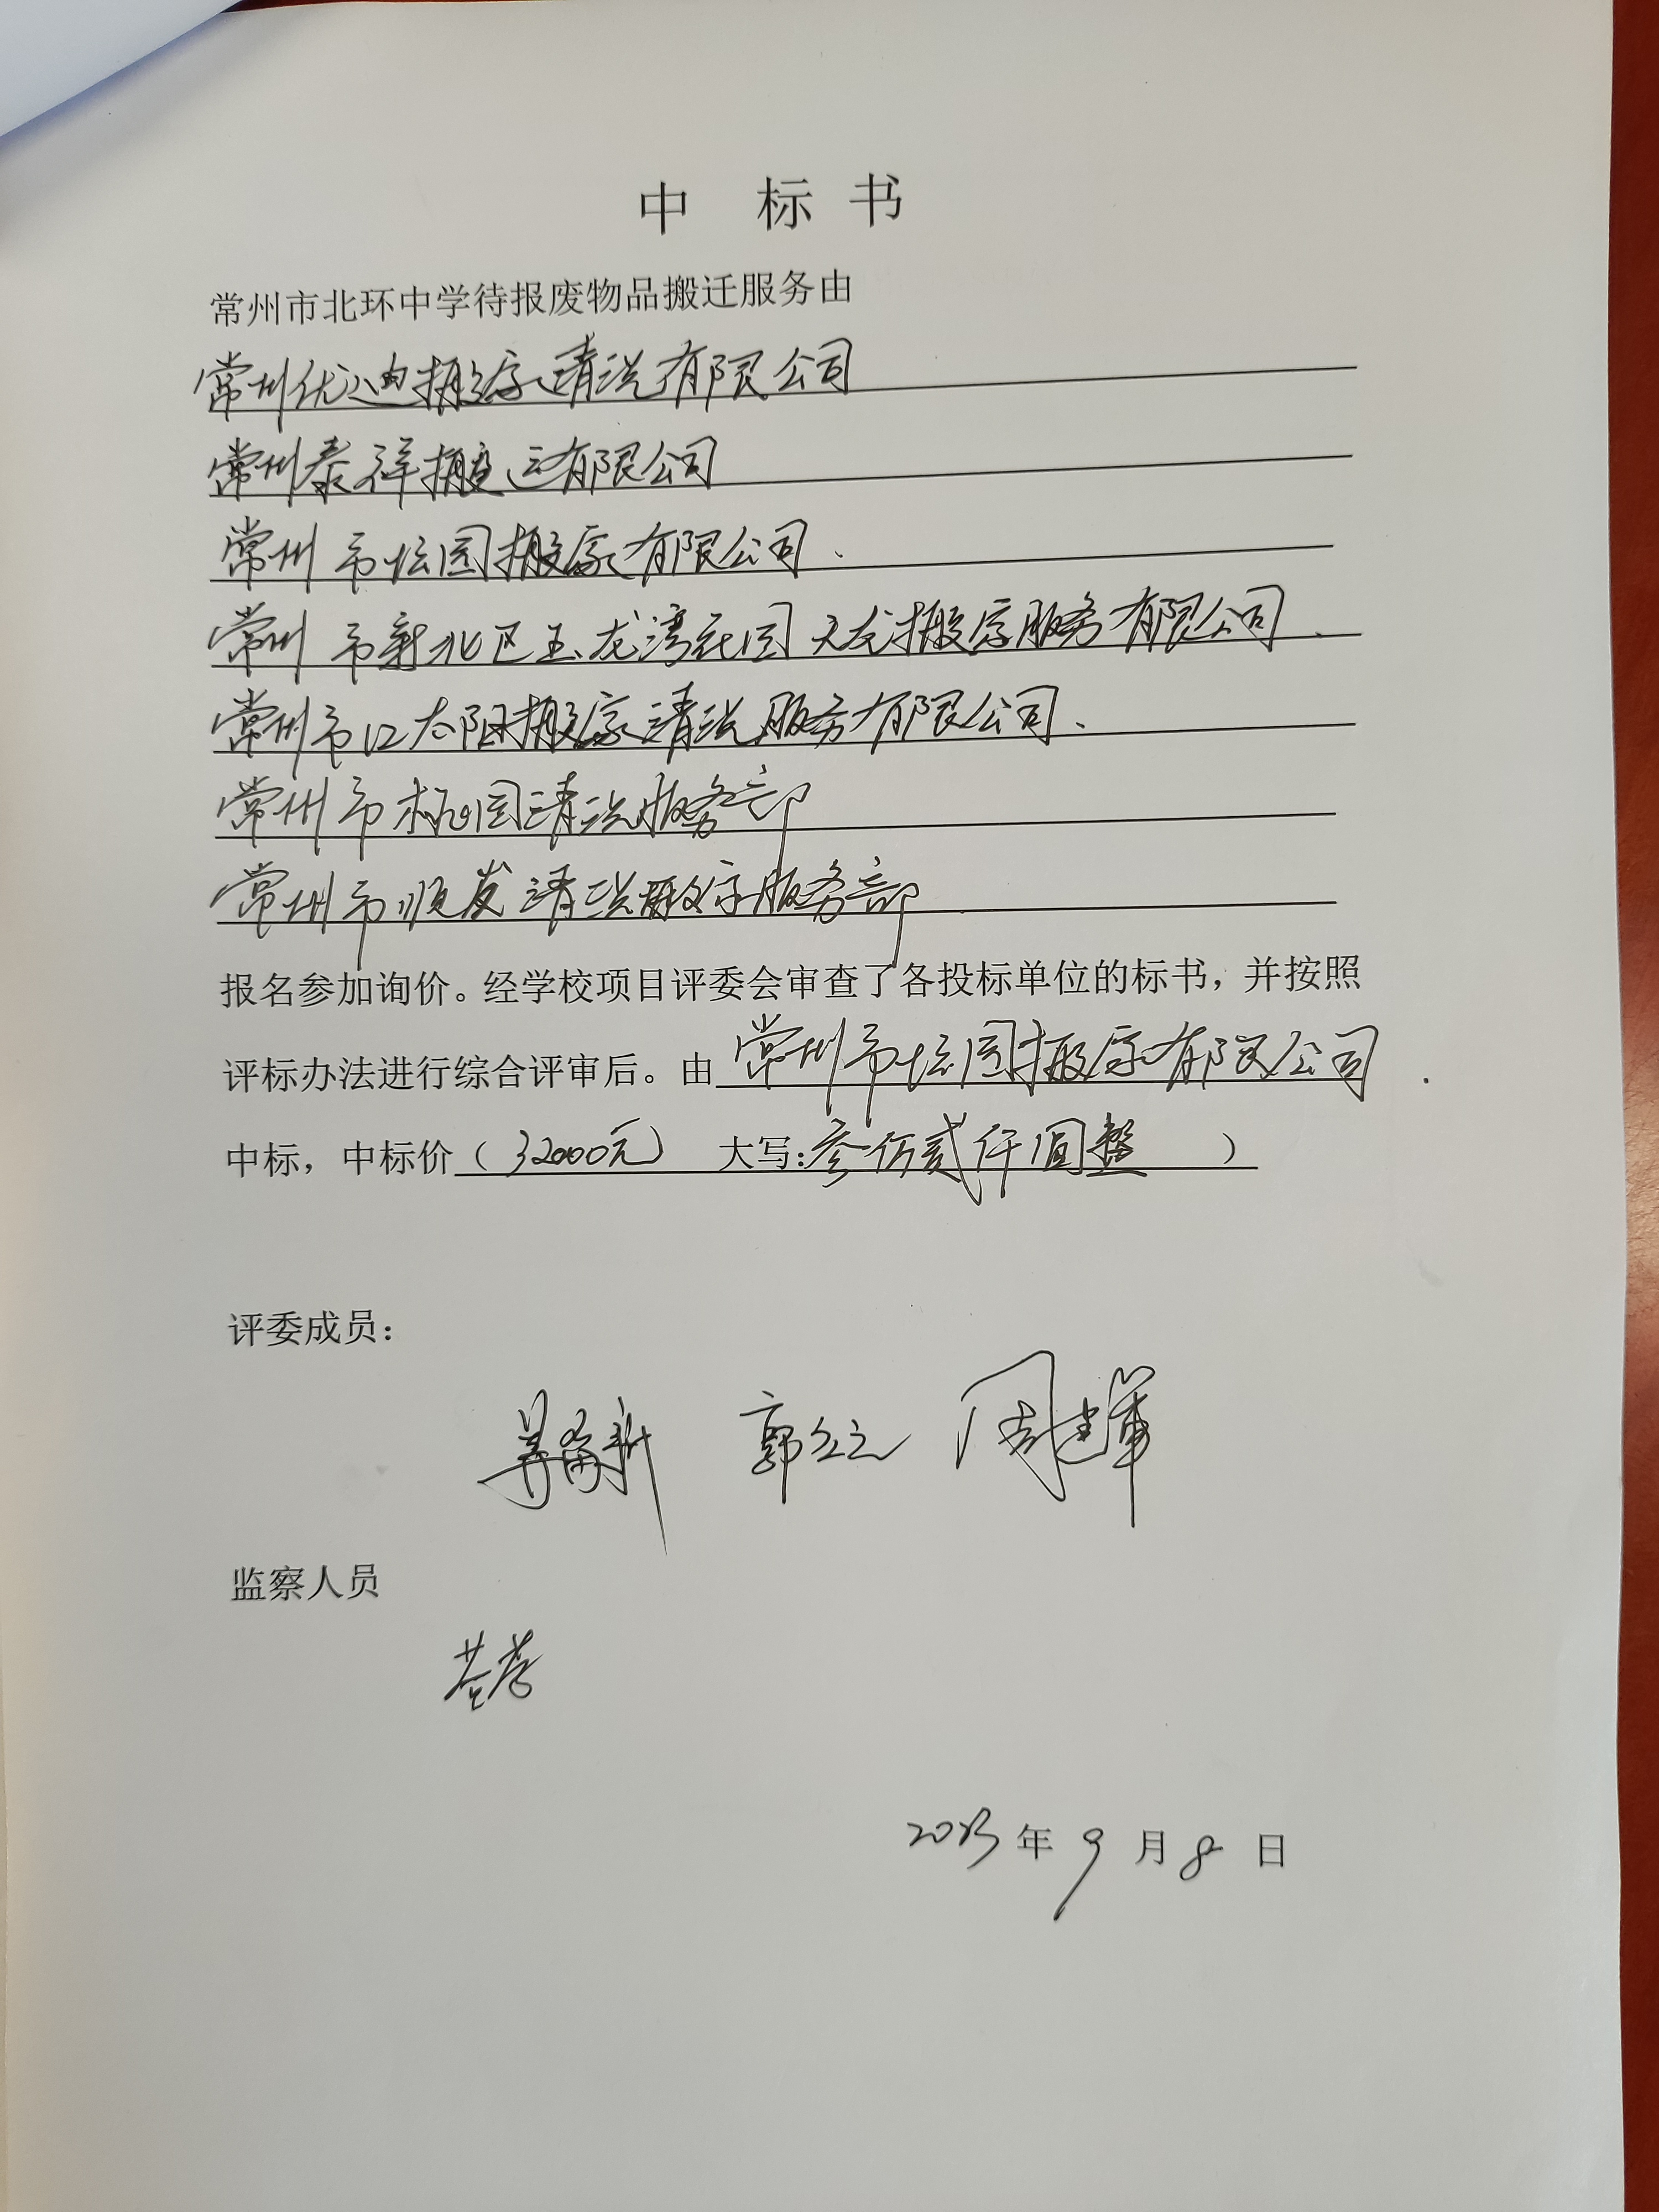 中 标 书
常州市北环中学待报废物品搬迁服务由
常州优迪搬家清洗有限公司
常州泰祥搬运有限公司
常州市坛园搬家有限公司.
常州市新北区玉龙湾花园天龙搬家服务有限公司.
常州市江太阳搬家清洗服务有限公司.
常州市桃园清洗服务部
常州市顺发清洗搬家服务部
报名参加询价。经学校项目评委会审查了各投标单位的标书，并按照
评标办法进行综合评审后。由常州市坛园搬家有限公司.
中标，中标价（32000元） 大写:叁仟贰仟圆整 ）
评委成员：
郭 周建军
监察人员
2023年9月8日